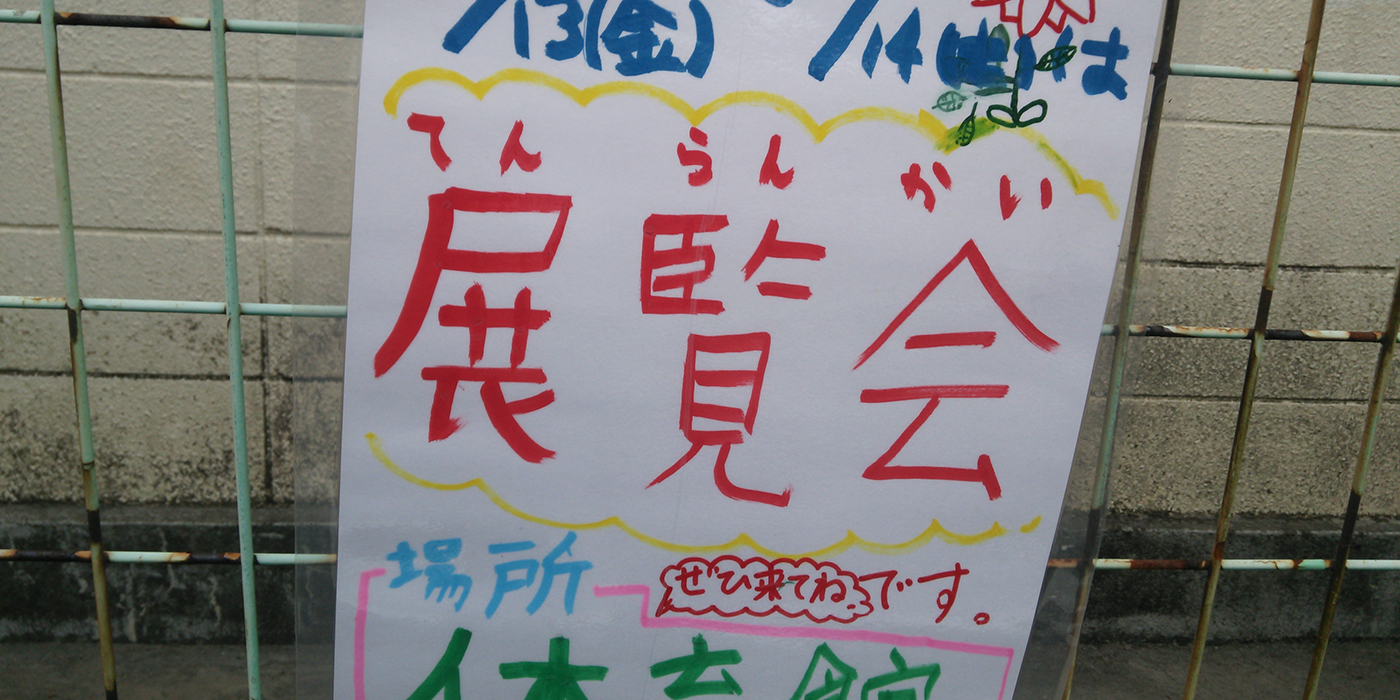 /13(金) /14(土)は
てん らん かい
展覧会
場所 ぜひ来てね。です。
体育館